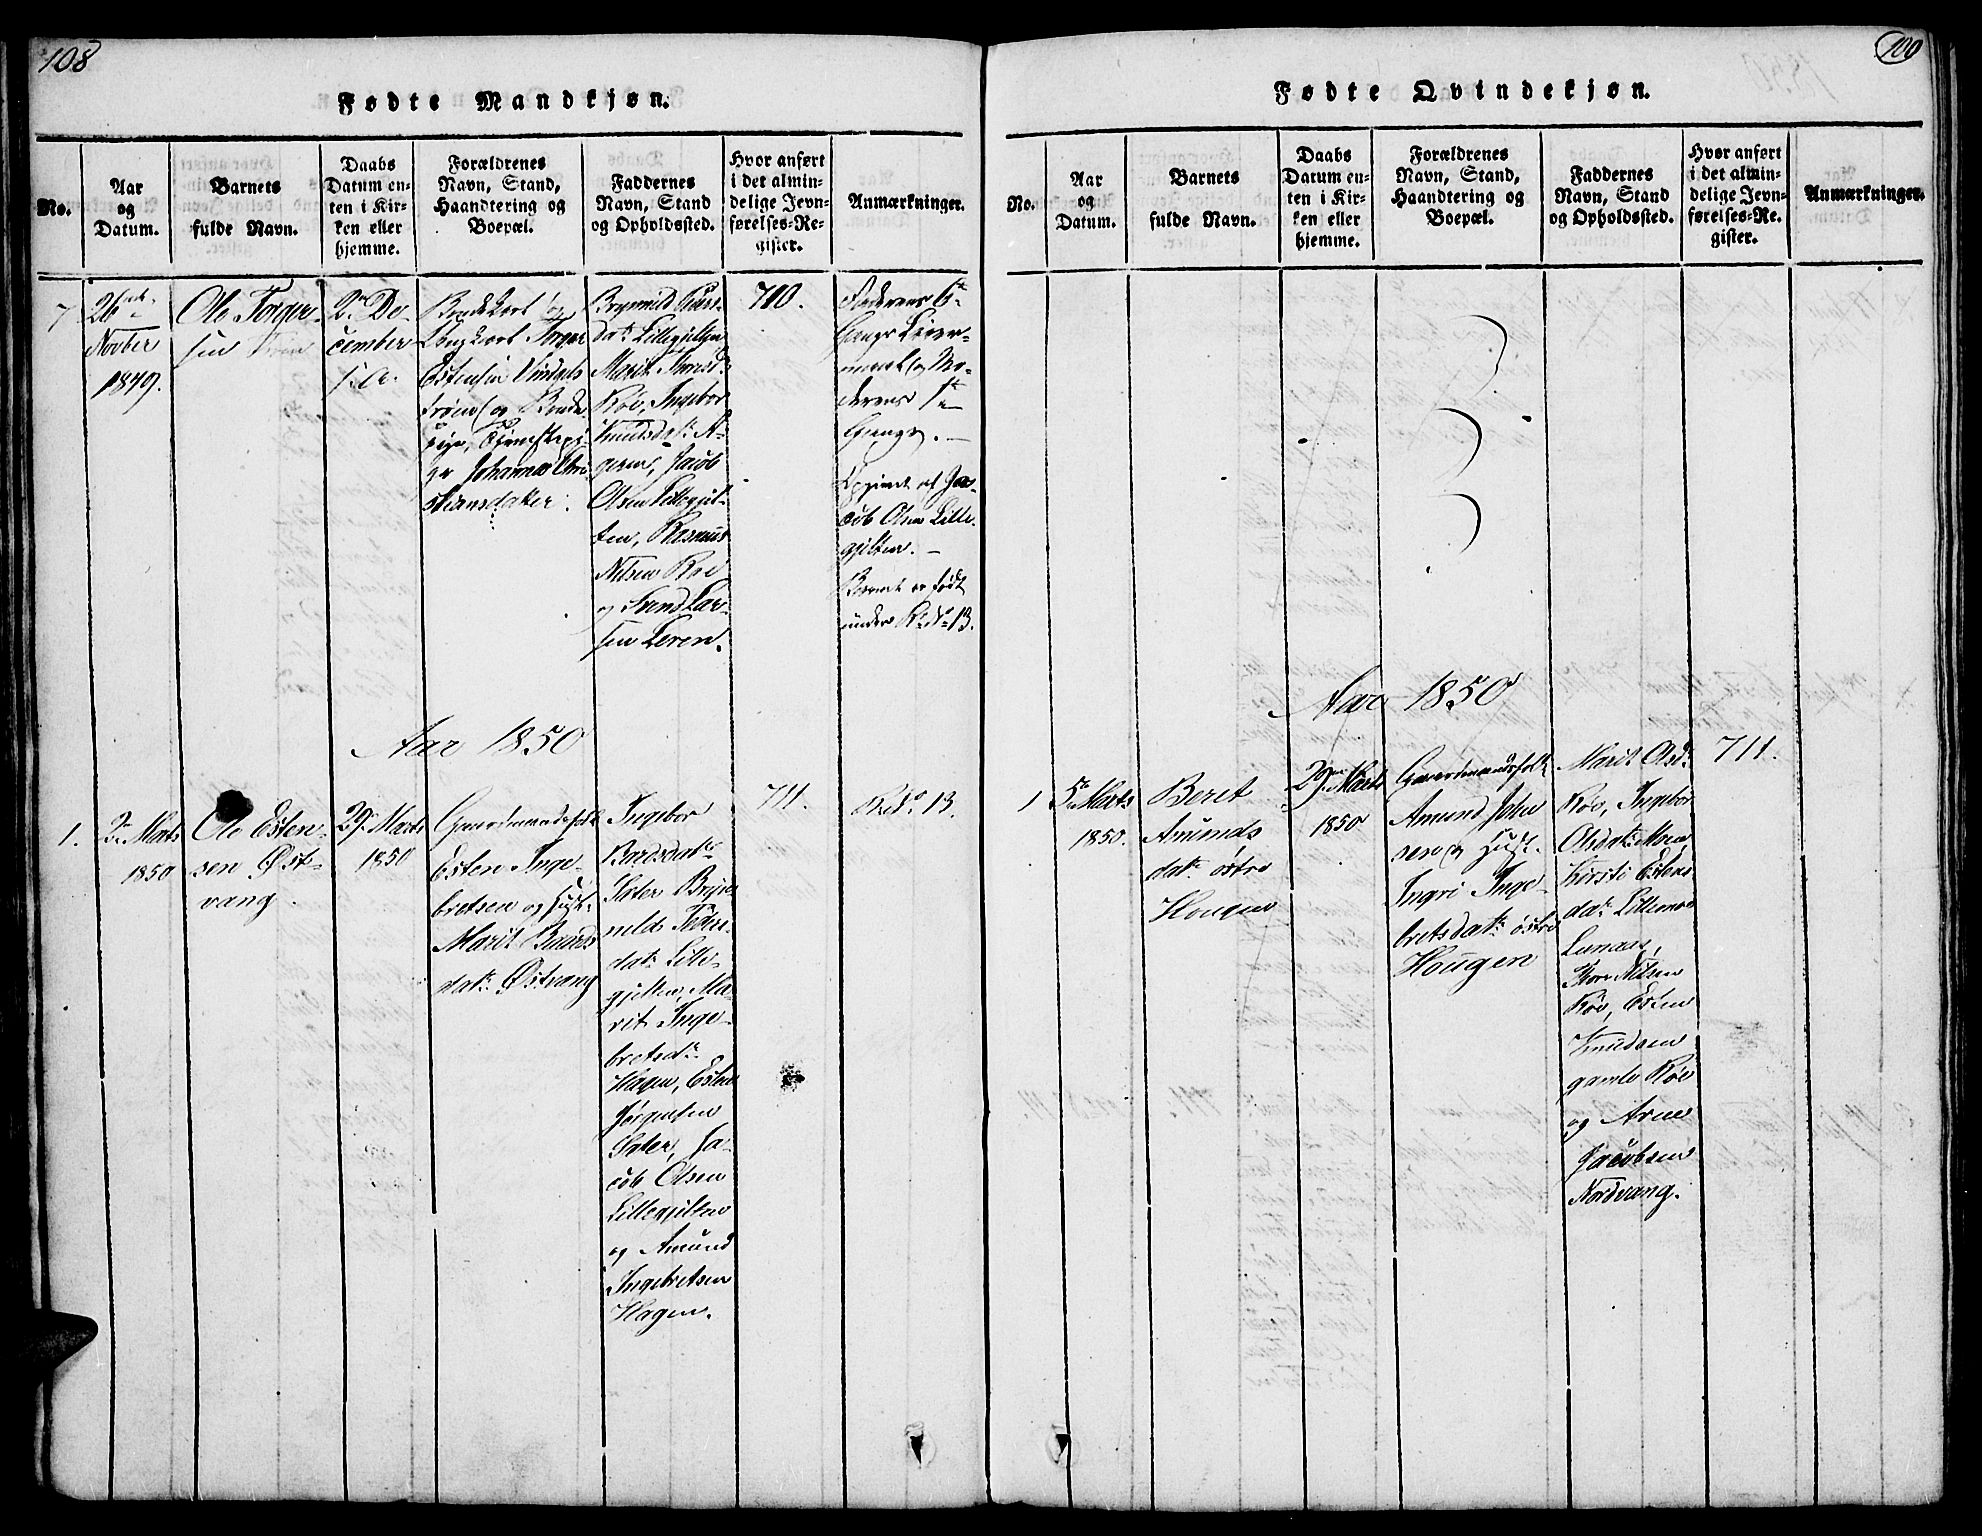 108
Fødte Mandkjøn.
No.
Aar
og
Datum.
Barnets
fulde Navn.
Daabs
Datum en-
ten i Kir-
ken eller
hjemme.
Forældrenes
Navn, Stand,
Haandtering og
Boepæl.
Faddernes
Navn, Stand
og Opholdssted.
Hvor anført
i det almin-
delige Jevn-
førelses-Re-
gister.
Anmærkninger.
7
26
Novber
1849.
Ole Torger-
sen
2den De-
cember
s. A.
Ungkarl Torger
Estensen
og
Johanna Chri-
stiansdatter.
Brynnild
datr Lillegjelten
Marit
Røe, Ingebor
Knudsdatr A-
gerens, Jacob
Olsen Lillegjel-
ten, Rasmus
Nilsen Røe
og Svend Lar-
sen Leren.
710.
Faderens 6te
Leier-
maal og Mo-
derens 1te
Gang. —
Opgivet af Ja-
cob Olsen Lille-
gjelten. —
Barnet er født
under Rd No 13.
Aar 1850
1.
2n Marts
1850
Ole Esten-
sen Øst-
vang.
29. Marts
1850
Gaardmandsfolk
Esten Inge-
bretsen og Hust.
Marit Baards
datr Østvang
Ingebor
Bardsdatr
Sater, Bryn-
nild Peders-
datr Lille-
gjelten, Ma-
rit Inge-
bretsdr
Hagen, Esten
Jørgensen
Sater, Ja-
cob Olsen
Lillegjelten
og Amund
Ingebretsen
Hagen.
711.
Rd No 13.
100
Fødte Qvindekjøn.
No.
Aar
og
Datum.
Barnets
fulde Navn.
Daabs
Datum en-
ten i Kir-
ken eller
hjemme.
Forældrenes
Navn, Stand,
Haandtering og
Boepæl.
Faddernes
Navn, Stand
og Opholdssted.
Hvor anført
i det almin-
delige Jevn-
førelses-Re-
gister.
Anmærkninger.
Aar 1850
1
5te Marts
1850.
Beret
Amunds
datr østre
Hougen
29. Marts
1850
Gaardmandsfolk
Amund John
sen og Hust.
Ingri Inge-
bretsdatr østre
Hougen
Marit Olsdr
Røe, Ingebor
Olsdatr Moen
Kirsti Estens
datr Lillemoe
Lunaas,
Tore Nilsen
Røe, Esten
Knudsen
gamle Røe
og Arne
Jacobsen
Nordvang.
711.